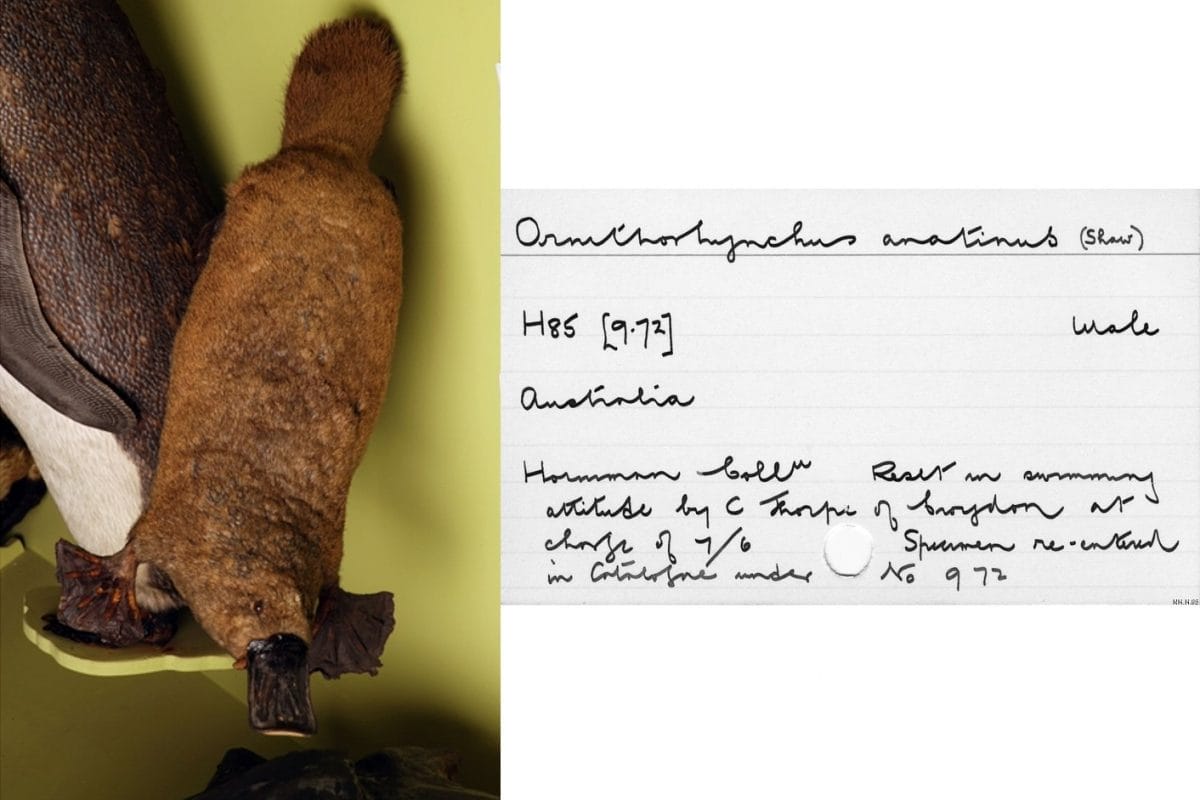 Ornithorhynchus anatinus (Shaw)
H85 [9.72] Male
Australia
Horniman Colln Reset in swimming
attitude by C Thorpe of Croydon at
charge of 7/6 Specimen re-entered
in Catalogue under No 972
NH.H.85